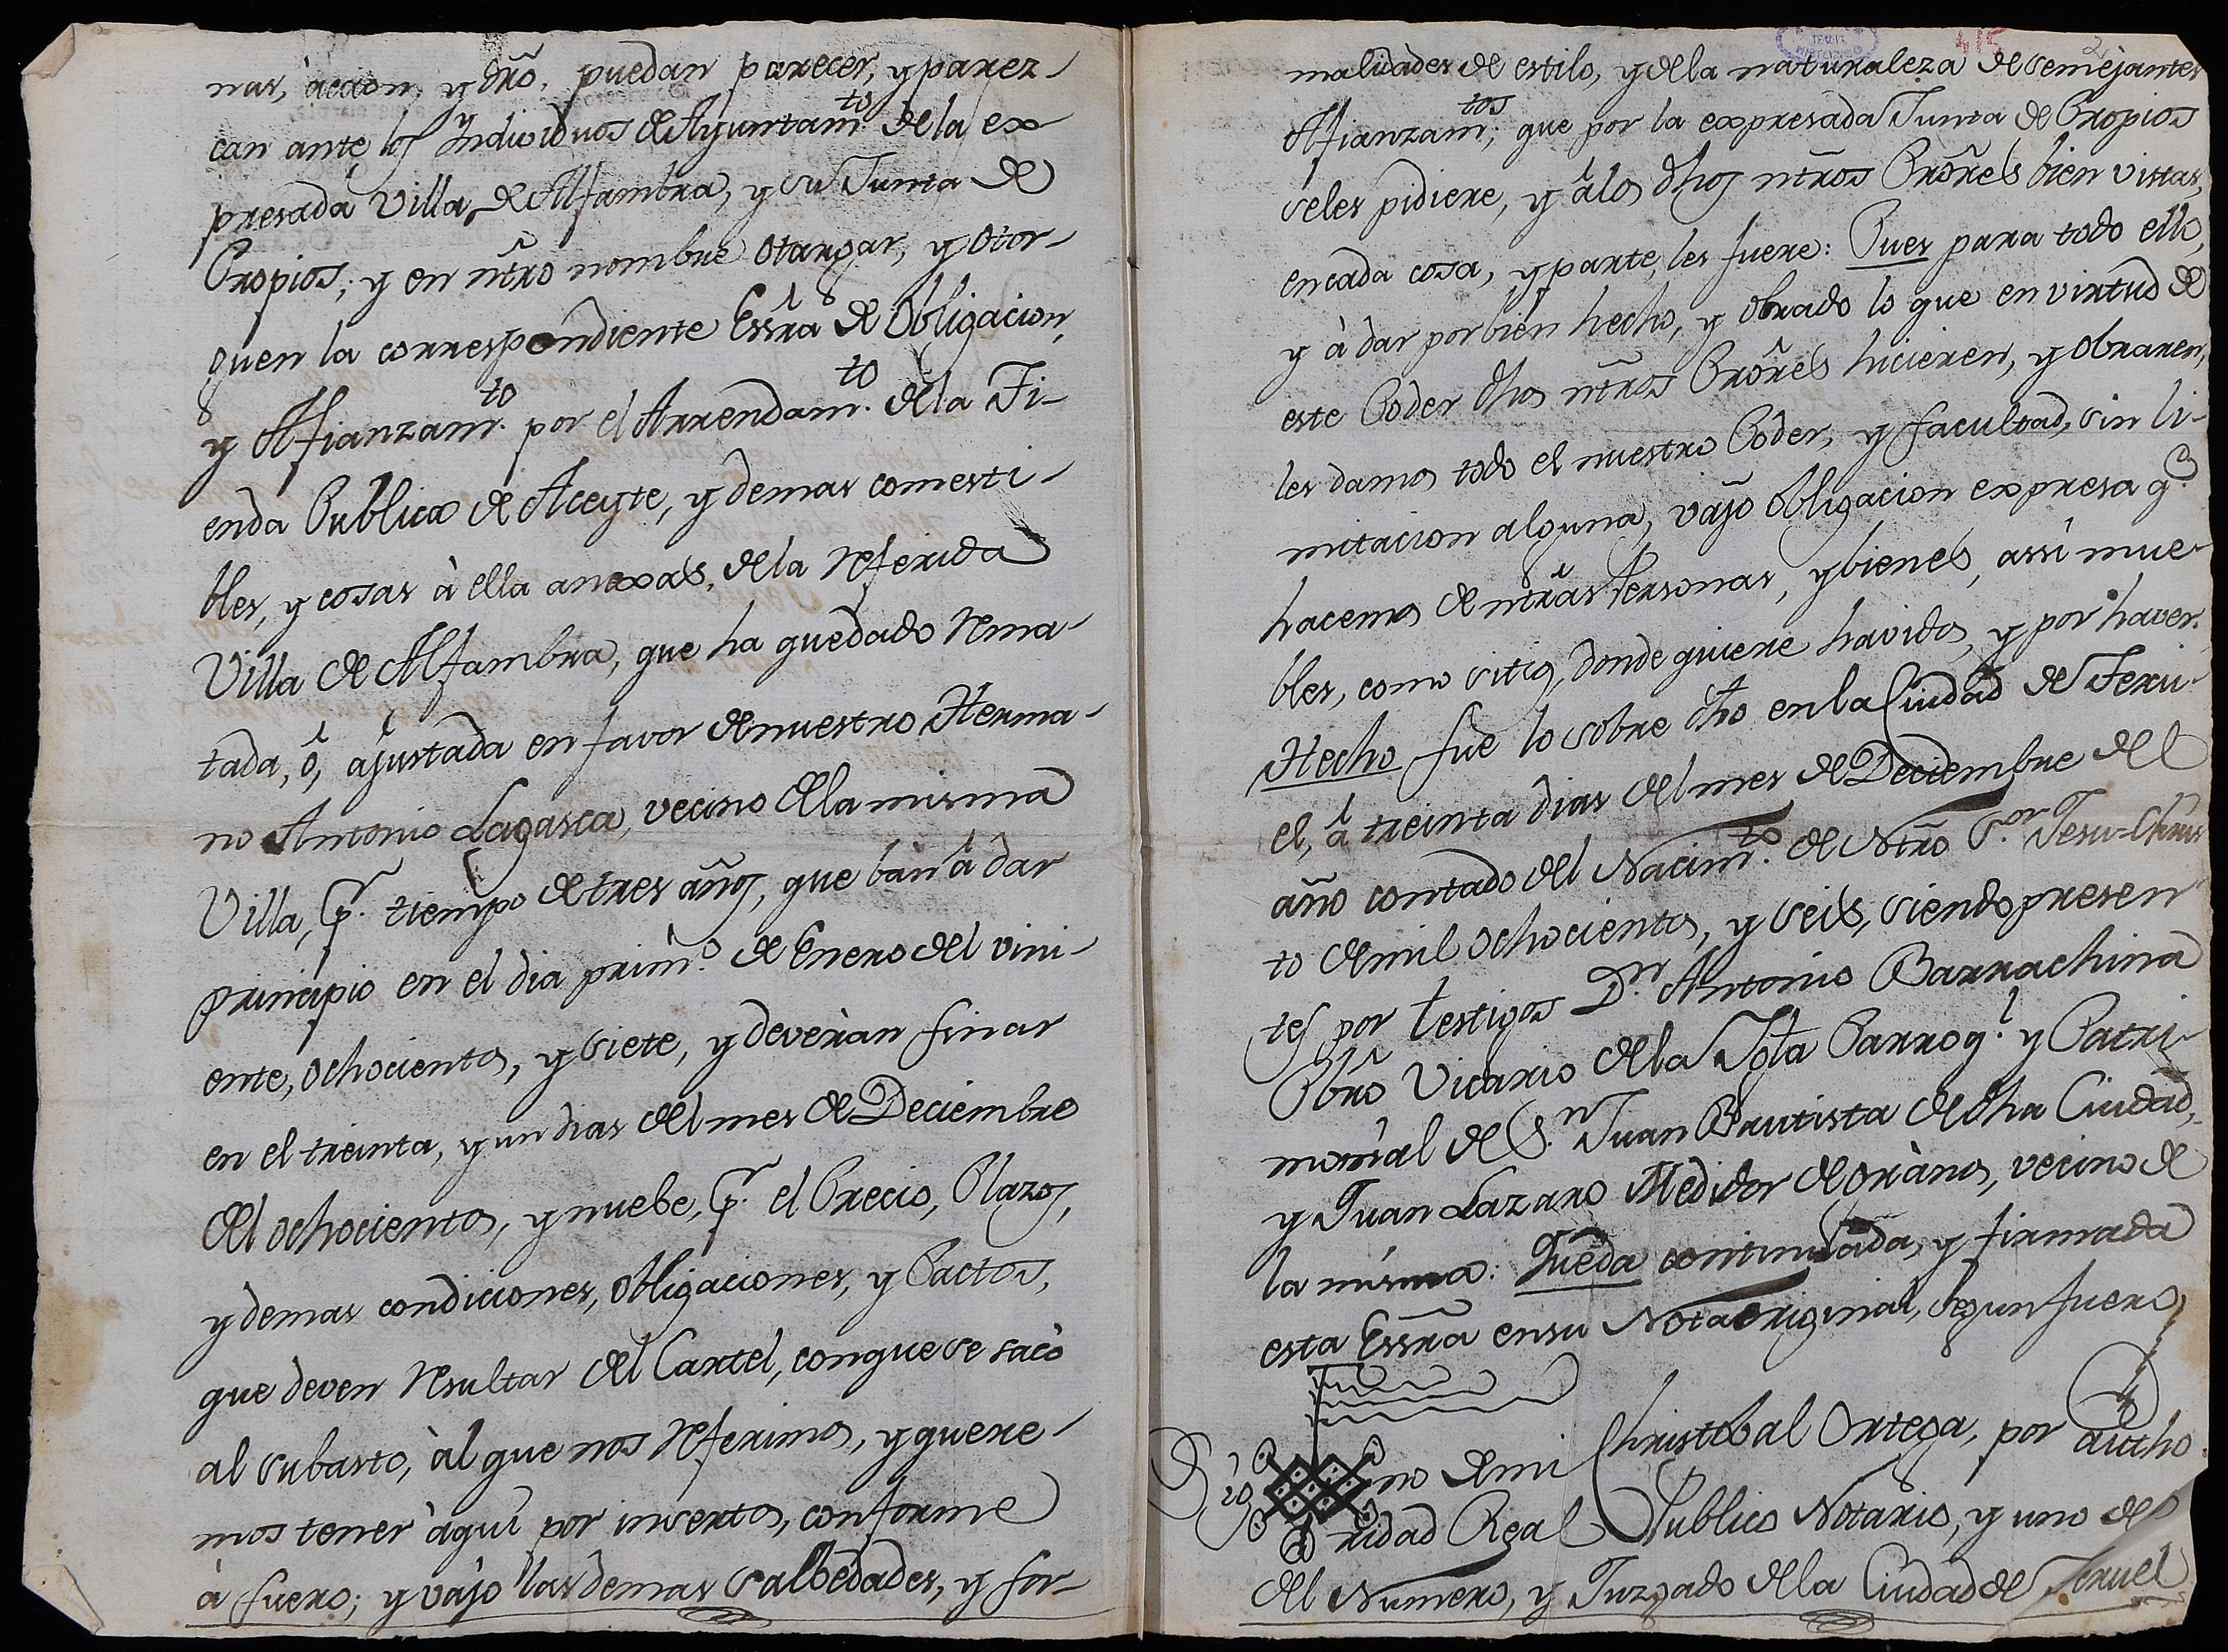 nas, accion, y dr̃o, puedan parecer, y parez-
can ante los Yndividuos de Ayuntam.to de la ex
presada Villa de Alfambra, y su Junta de
Propios; y en ntr̃o nombre otorgar, y otor-
guen la correspondiente Essr̃a de Obligacion,
y Afianzam.to por el Arrendam.to de la Ti-
enda Publica de Aceyte, y demas comesti-
bles, y cosas à ella anexas, de la referida
Villa de Alfambra, que ha quedado rema-
tada, ô, ajustada en favor de nuestro Herma-
no Antonio Lagasca, vecino de la misma
Villa, p.r tiempo de tres años, que ban â dar
principio en el dia prim.o de Enero del vini-
ente, ochocientos, y siete, y deveràn finar
en el treinta, y un dias del mes de Deciembre
del ochocientos, y nuebe, p.r el Precio, Plazos,
y demas condiciones, obligaciones, y Pactos,
que deven resultar del Cartel, con que se sacò
al subasto, àl que nos referimos, y quere-
mos tener àqui por insertos, conforme
à fuero; y vajo las demas salbedades, y for-
malidades de estilo, y de la naturaleza de semejantes
Afianzam.tos; que por la expresada Junta de Propios
seles pidiere, y â los dhos ntr̃os Prõres bien vistas,
en cada cosa, y parte, les fuere: Pues para todo ello,
y à dar por bien hecho, y obrado lo que en virtud de
este Poder dhos ntr̃os Prõres hicieren, y obraren,
les damos todo el nuestro Poder, y facultad, sin li-
mitacion alguna, vajo obligacion expresa q.e
hacemos de ntr̃as Personas, y bienes, assi mue-
bles, como sitios, donde quiere havidos, y por haver.
Hecho fue lo sobre dho en la Ciudad de Teru-
el, â treinta dias del mes de Deciembre del
año contado del Nacim.to de Ntr̃o S.or Jesu-Chris
to de mil ochocientos, y seis, siendo presen
tes por testigos D.n Antonio Barrachina
Pbr̃o Vicario de la Ygl̃a Parroq.l y Patri-
monial de S.n Juan Bautista de dha Ciudad,
y Juan Lazaro Medidor de grànos, vecino de
la misma: Queda continuada, y firmada
esta Essr̃a en su Nota original, segun fuero,
Sig no de mi Christobal Ortega, por autho
ridad Real Publico Notario, y uno de los
del Numero, y Juzgado de la Ciudad de Teruel